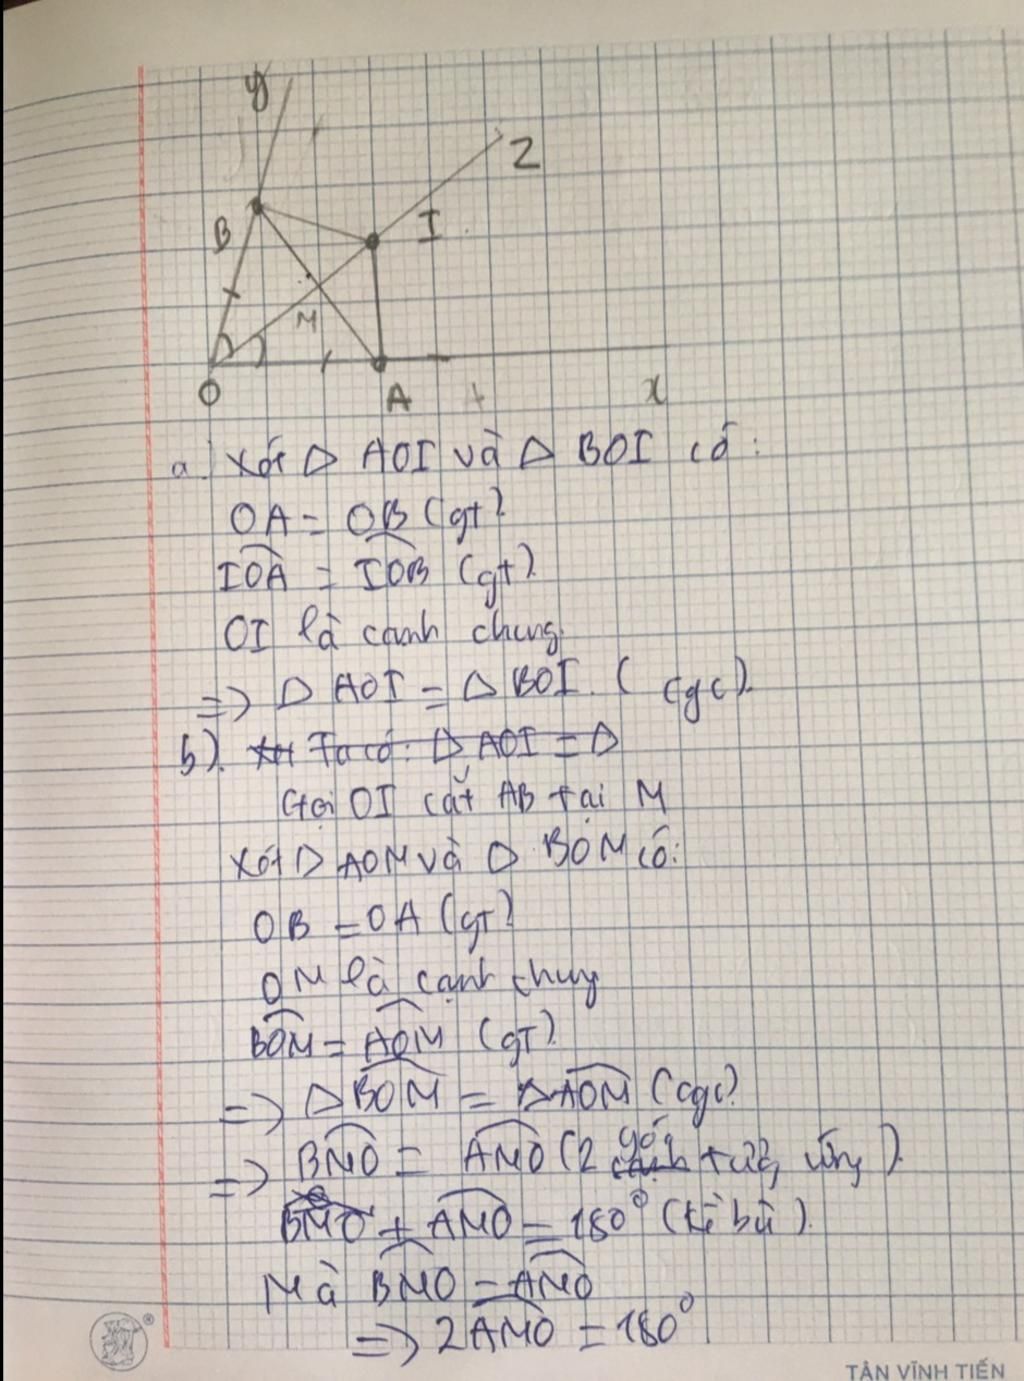 y
Z
B
I
M
O
A
x
a. Xét △ AOI và △ BOI có:
OA = OB (gt).
IOA = IOB (gt).
OI là cạnh chung.
=> △ AOI = △ BOI. (cgc).
b). Xét Ta có: △ AOI = △
Gọi OI cắt AB tại M
Xét △ AOM và △ BOM có:
OB = OA (gT)
OM là cạnh chung
BOM = AOM (gT).
=> △BOM = △AOM (cgc).
=> BMO = AMO (2 góc tương ứng).
BMO + AMO = 180° (kề bù).
Mà BMO = AMO
=> 2AMO = 180°
TÂN VĨNH TIẾN